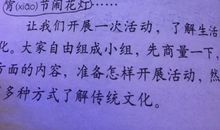 宵(xiāo)节闹花灯……
让我们开展一次活动，了解生活
化。大家自由组成小组，先商量一下，
方面的内容，准备怎样开展活动，然
多种方式了解传统文化。